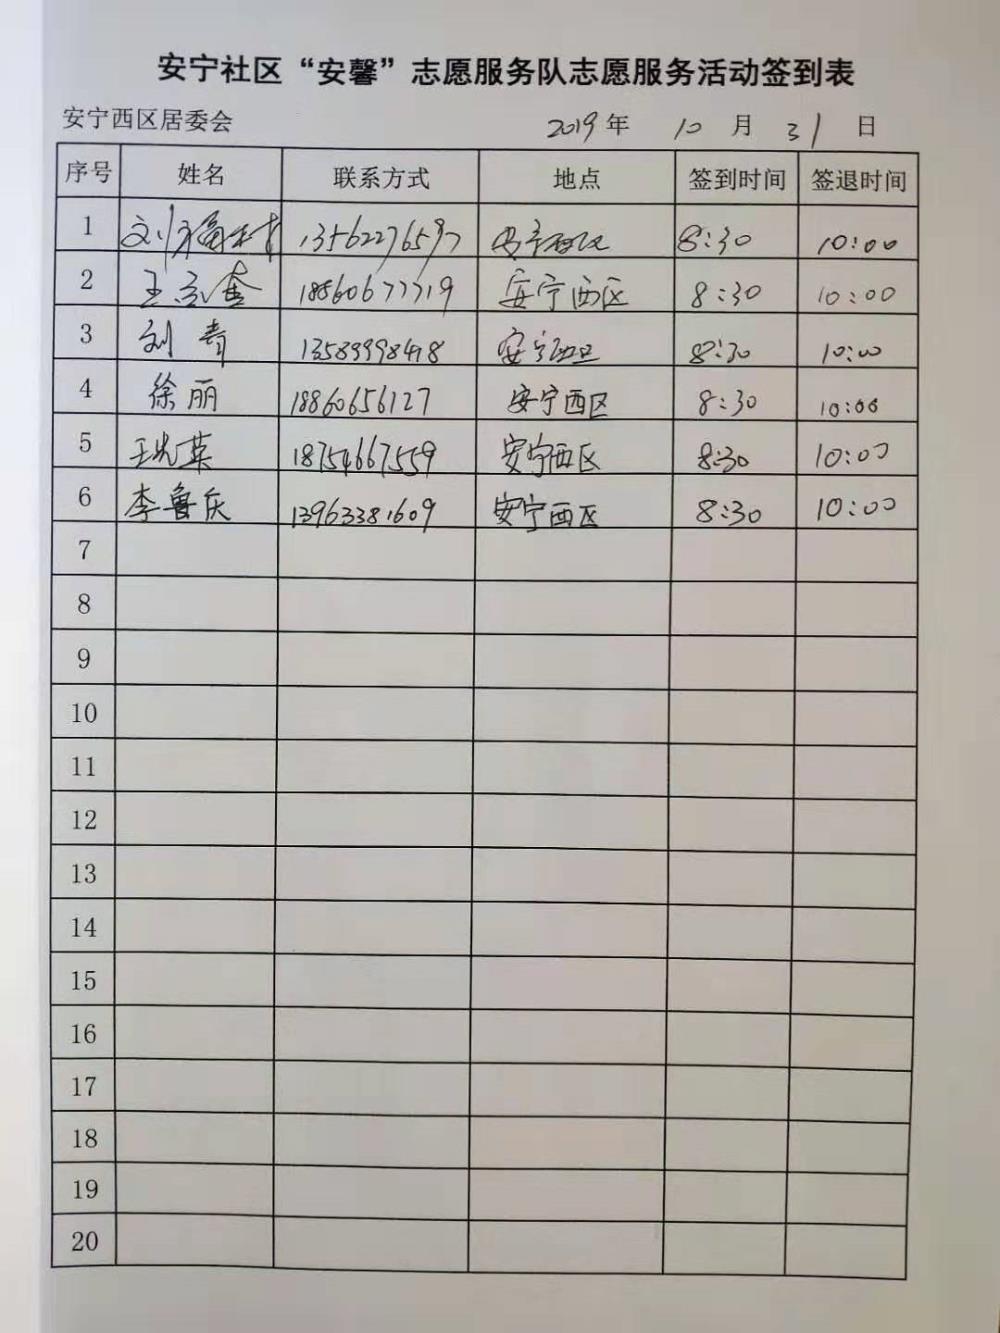 安宁社区“安馨”志愿服务队志愿服务活动签到表
安宁西区居委会 2019年 10 月 31 日
序号 姓名 联系方式 地点 签到时间 签退时间
1 刘 13562276597 安宁西区 8:30 10:00
2 王 18560677719 安宁西区 8:30 10:00
3 刘青 13589998418 安宁西区 8:30 10:00
4 徐丽 18860656127 安宁西区 8:30 10:00
5 王光英 18754667559 安宁西区 8:30 10:00
6 李鲁庆 13963381609 安宁西区 8:30 10:00
7
8
9
10
11
12
13
14
15
16
17
18
19
20